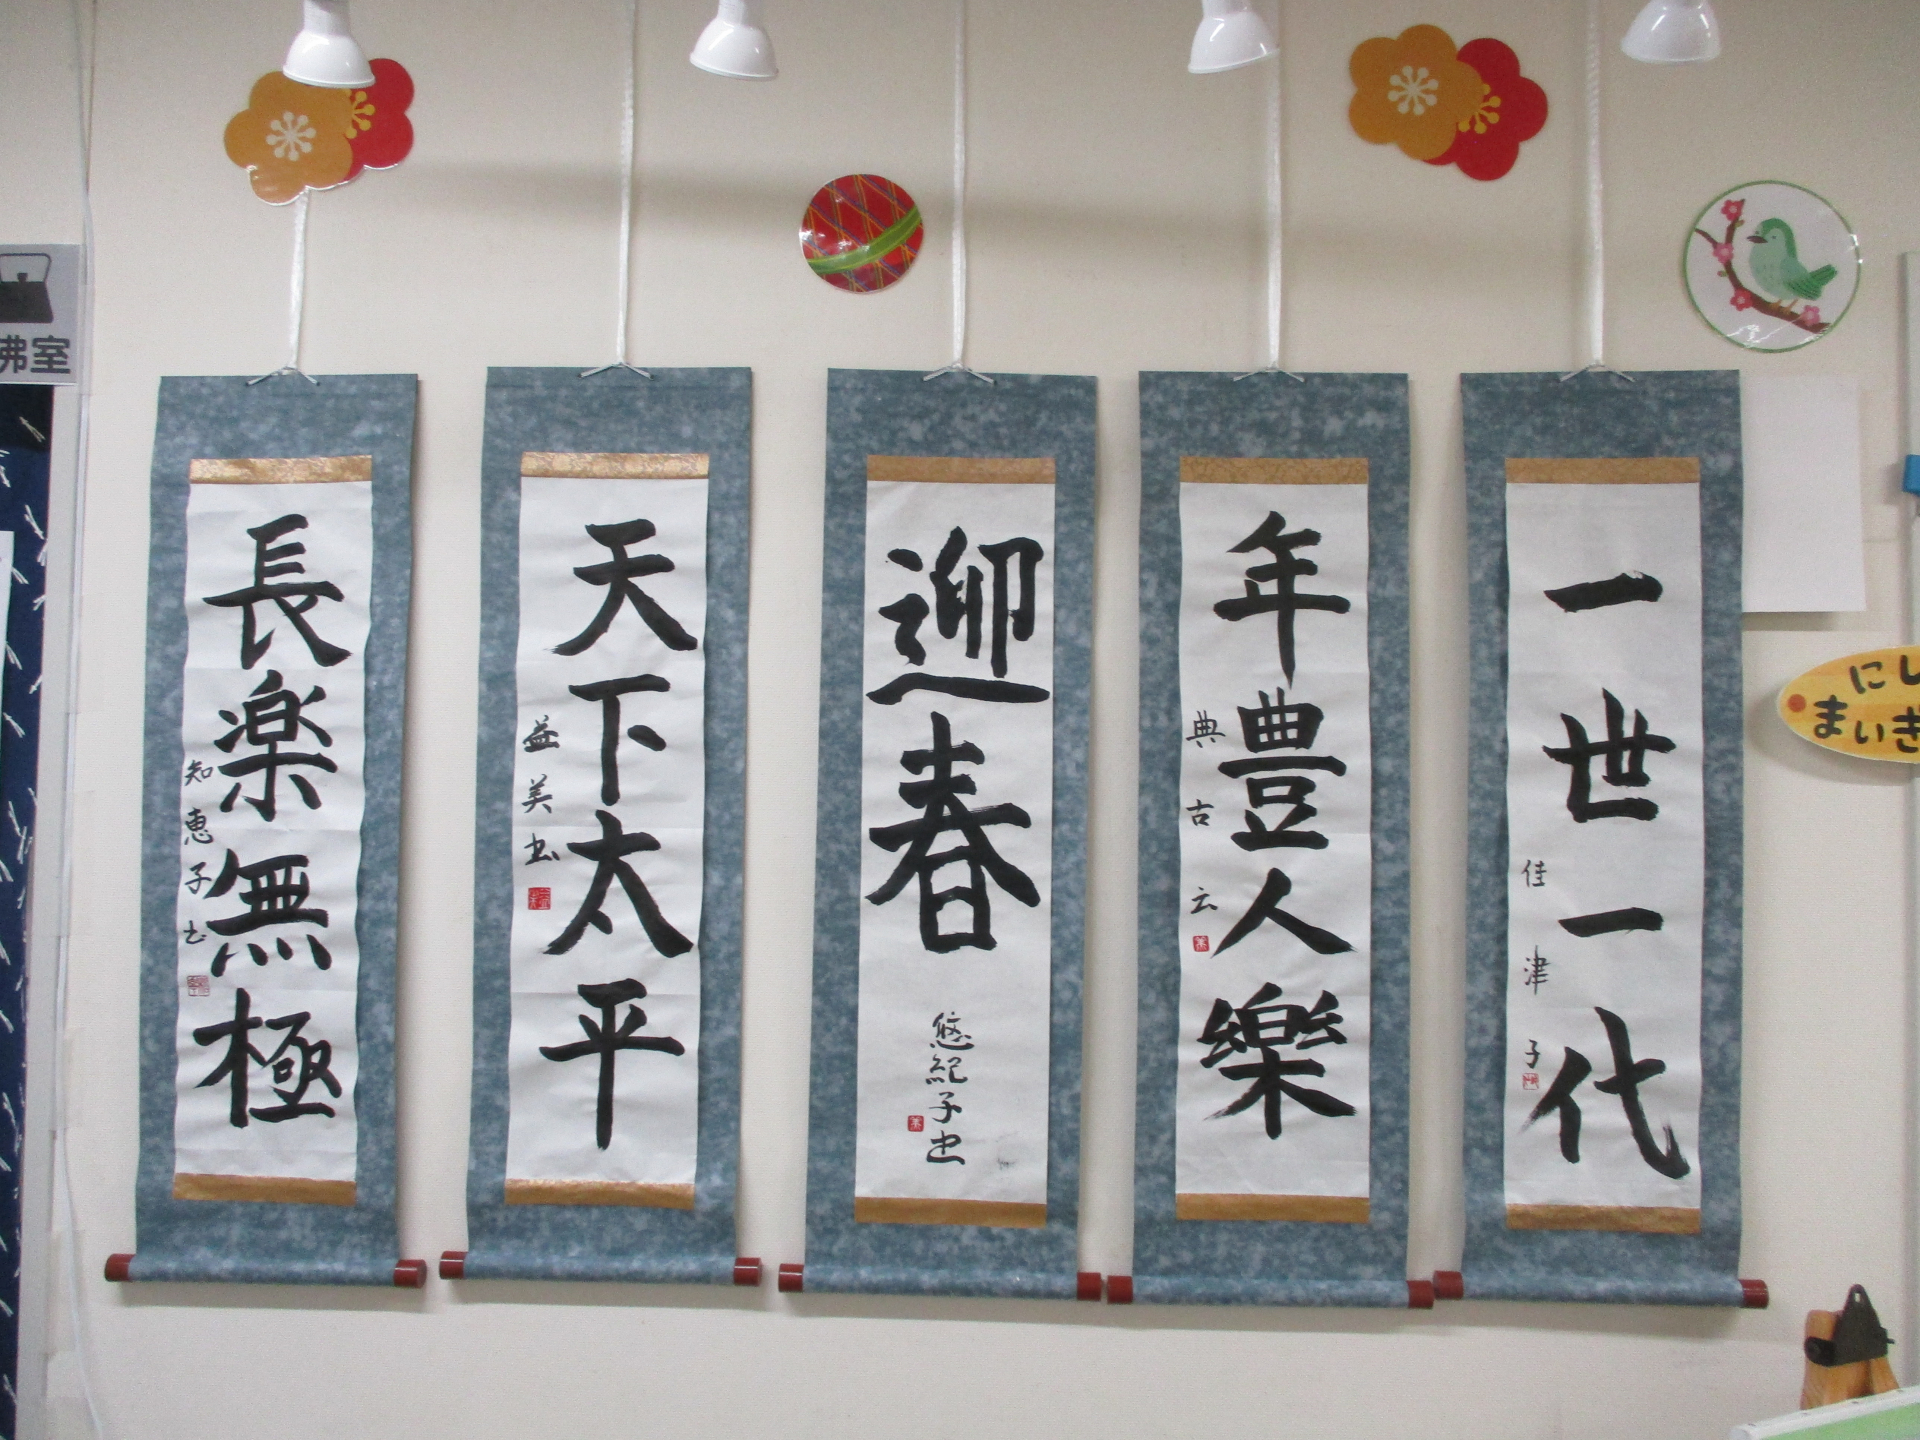 一世一代
佳津子
年豊人樂
典古云
迎春
悠紀子書
天下太平
益美書
長楽無極
知恵子書
沸室
にし
まいき